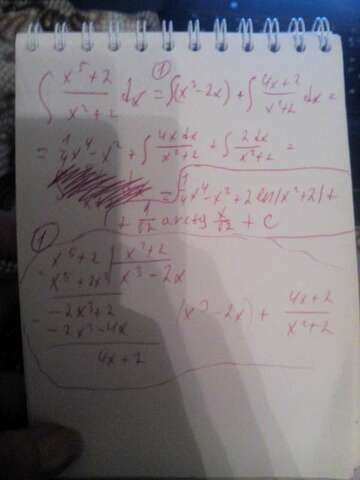 ∫ (x⁵+2)/(x²+2) dx =① ∫(x³-2x) + ∫ (4x+2)/(x²+2) dx =
= 1/4 x⁴ - x² + ∫ 4x dx/(x²+2) + ∫ 2 dx/(x²+2) =
= 1/4 x⁴ - x² + 2 ln|x²+2| +
+ 1/√2 arctg x/√2 + C
①
x⁵+2 | x²+2
x⁵+2x³ | x³-2x
-2x³+2
-2x³-4x
4x+2
(x³-2x) + (4x+2)/(x²+2)